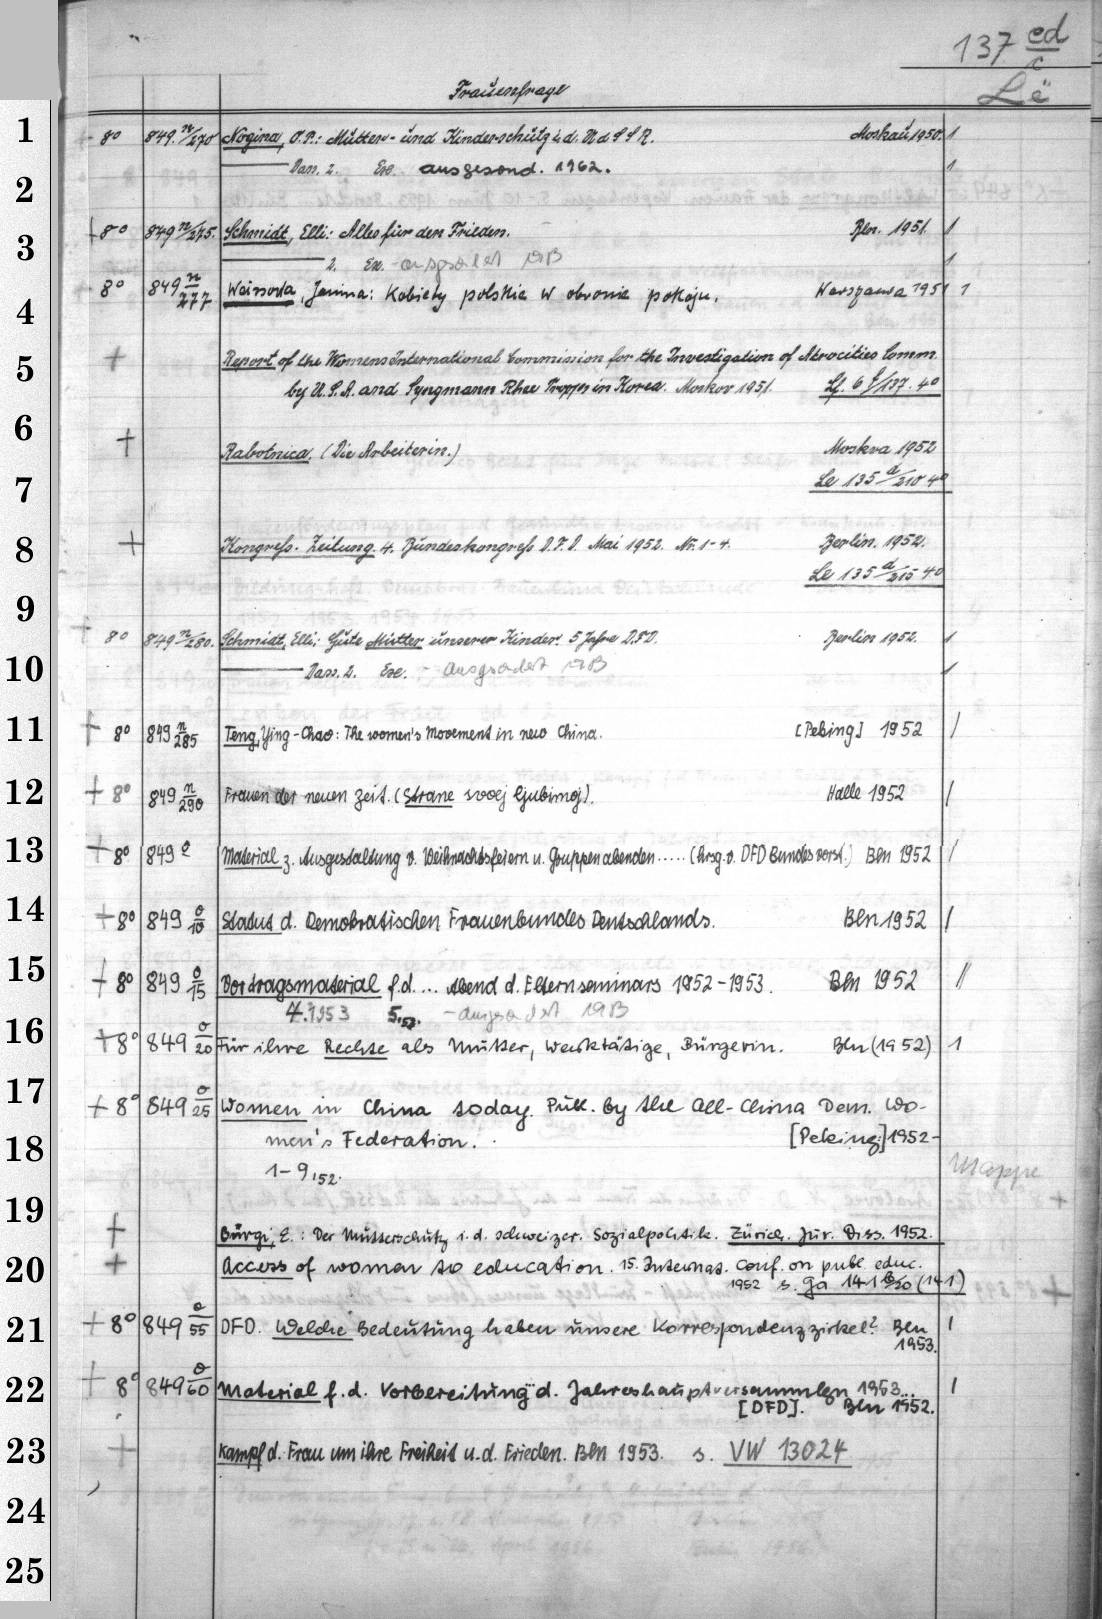 137 ed/c
Lë
Frauenfrage
1
+ 80 849. n/270 Nogina, O.P.: Mutter- und Kinderschutz i. d. UdSSR. Moskau 1950. 1
Dass. 2. Ex. ausgesond. 1962. 1
2
+ 80 849 n/275. Schmidt, Elli: Alles für den Frieden. Bln. 1951. 1
3
2. Ex. - 1
80 849 n/277 , Janina: Kobiety polskie w obronie pokoju. Warszawa 1951 1
4
+ Report of the Womens International Commission for the Investigation of Atrocities Comm.
5
by U.S.A. and Syngmann Rhee Troppes in Korea. Moskov 1951. 137. 40
6
+ Rabotnica. (Die Arbeiterin.) Moskva 1952
Le 135 a/210 40
7
+ Kongress-Zeitung. 4. Bundeskongress D.F.D. Mai 1952. Nr. 1-4. Berlin. 1952.
8
Le 135 a/215 40
9
+ 80 849 n/280. Schmidt, Elli: Gute Mütter unserer Kinder. 5 Jahre D.F.D. Berlin 1952. 1
10
Dass. 2. Ex. - 1
+ 80 849 n/285 Teng, Ying-Chao: The women's Movement in new China. [Peking] 1952 /
11
+ 80 849 n/290 Frauen der neuen Zeit. (Strane svoej ljubimoj). Halle 1952 /
12
+ 80 849 o Material z. Ausgestaltung v. Weihnachtsfeiern u. Gruppenabenden ..... (hrsg. v. DFD Bundesvorst.) Bln 1952 /
13
+ 80 849 o/10 Statut d. Demokratischen Frauenbundes Deutschlands. Bln 1952 /
14
+ 80 849 o/15 Vortragsmaterial f.d. ... Abend d. Elternseminars 1952-1953. Bln 1952 //
15
4.1953 5.53. -
16
+ 80 849 o/20 Für ihre Rechte als Mutter, Werktätige, Bürgerin. Bln (1952) 1
17
+ 80 849 o/25 Women in China today. Publ. by the All-China Dem. Wo-
men's Federation. [Peking] 1952-
18
1-9,52. Mappe
19
+ Bürgi, E.: Der Mutterschutz i. d. schweizer. Sozialpolitik. Zürich. Jur. Diss. 1952.
20
+ Access of woman to education. 15. Internat. conf. on publ. educ.
1952 s. Ga 141 (141)
21
+ 80 849 o/55 DFD. Welche Bedeutung haben unsere Korrespondenzzirkel? Bln 1
1953.
22
+ 80 849 o/60 Material f. d. Vorbereitung d. Jahreshauptversammlgn 1953... 1
[DFD]. Bln 1952.
23
+ Kampf d. Frau um ihre Freiheit u. d. Frieden. Bln 1953. s. VW 13024
24
25